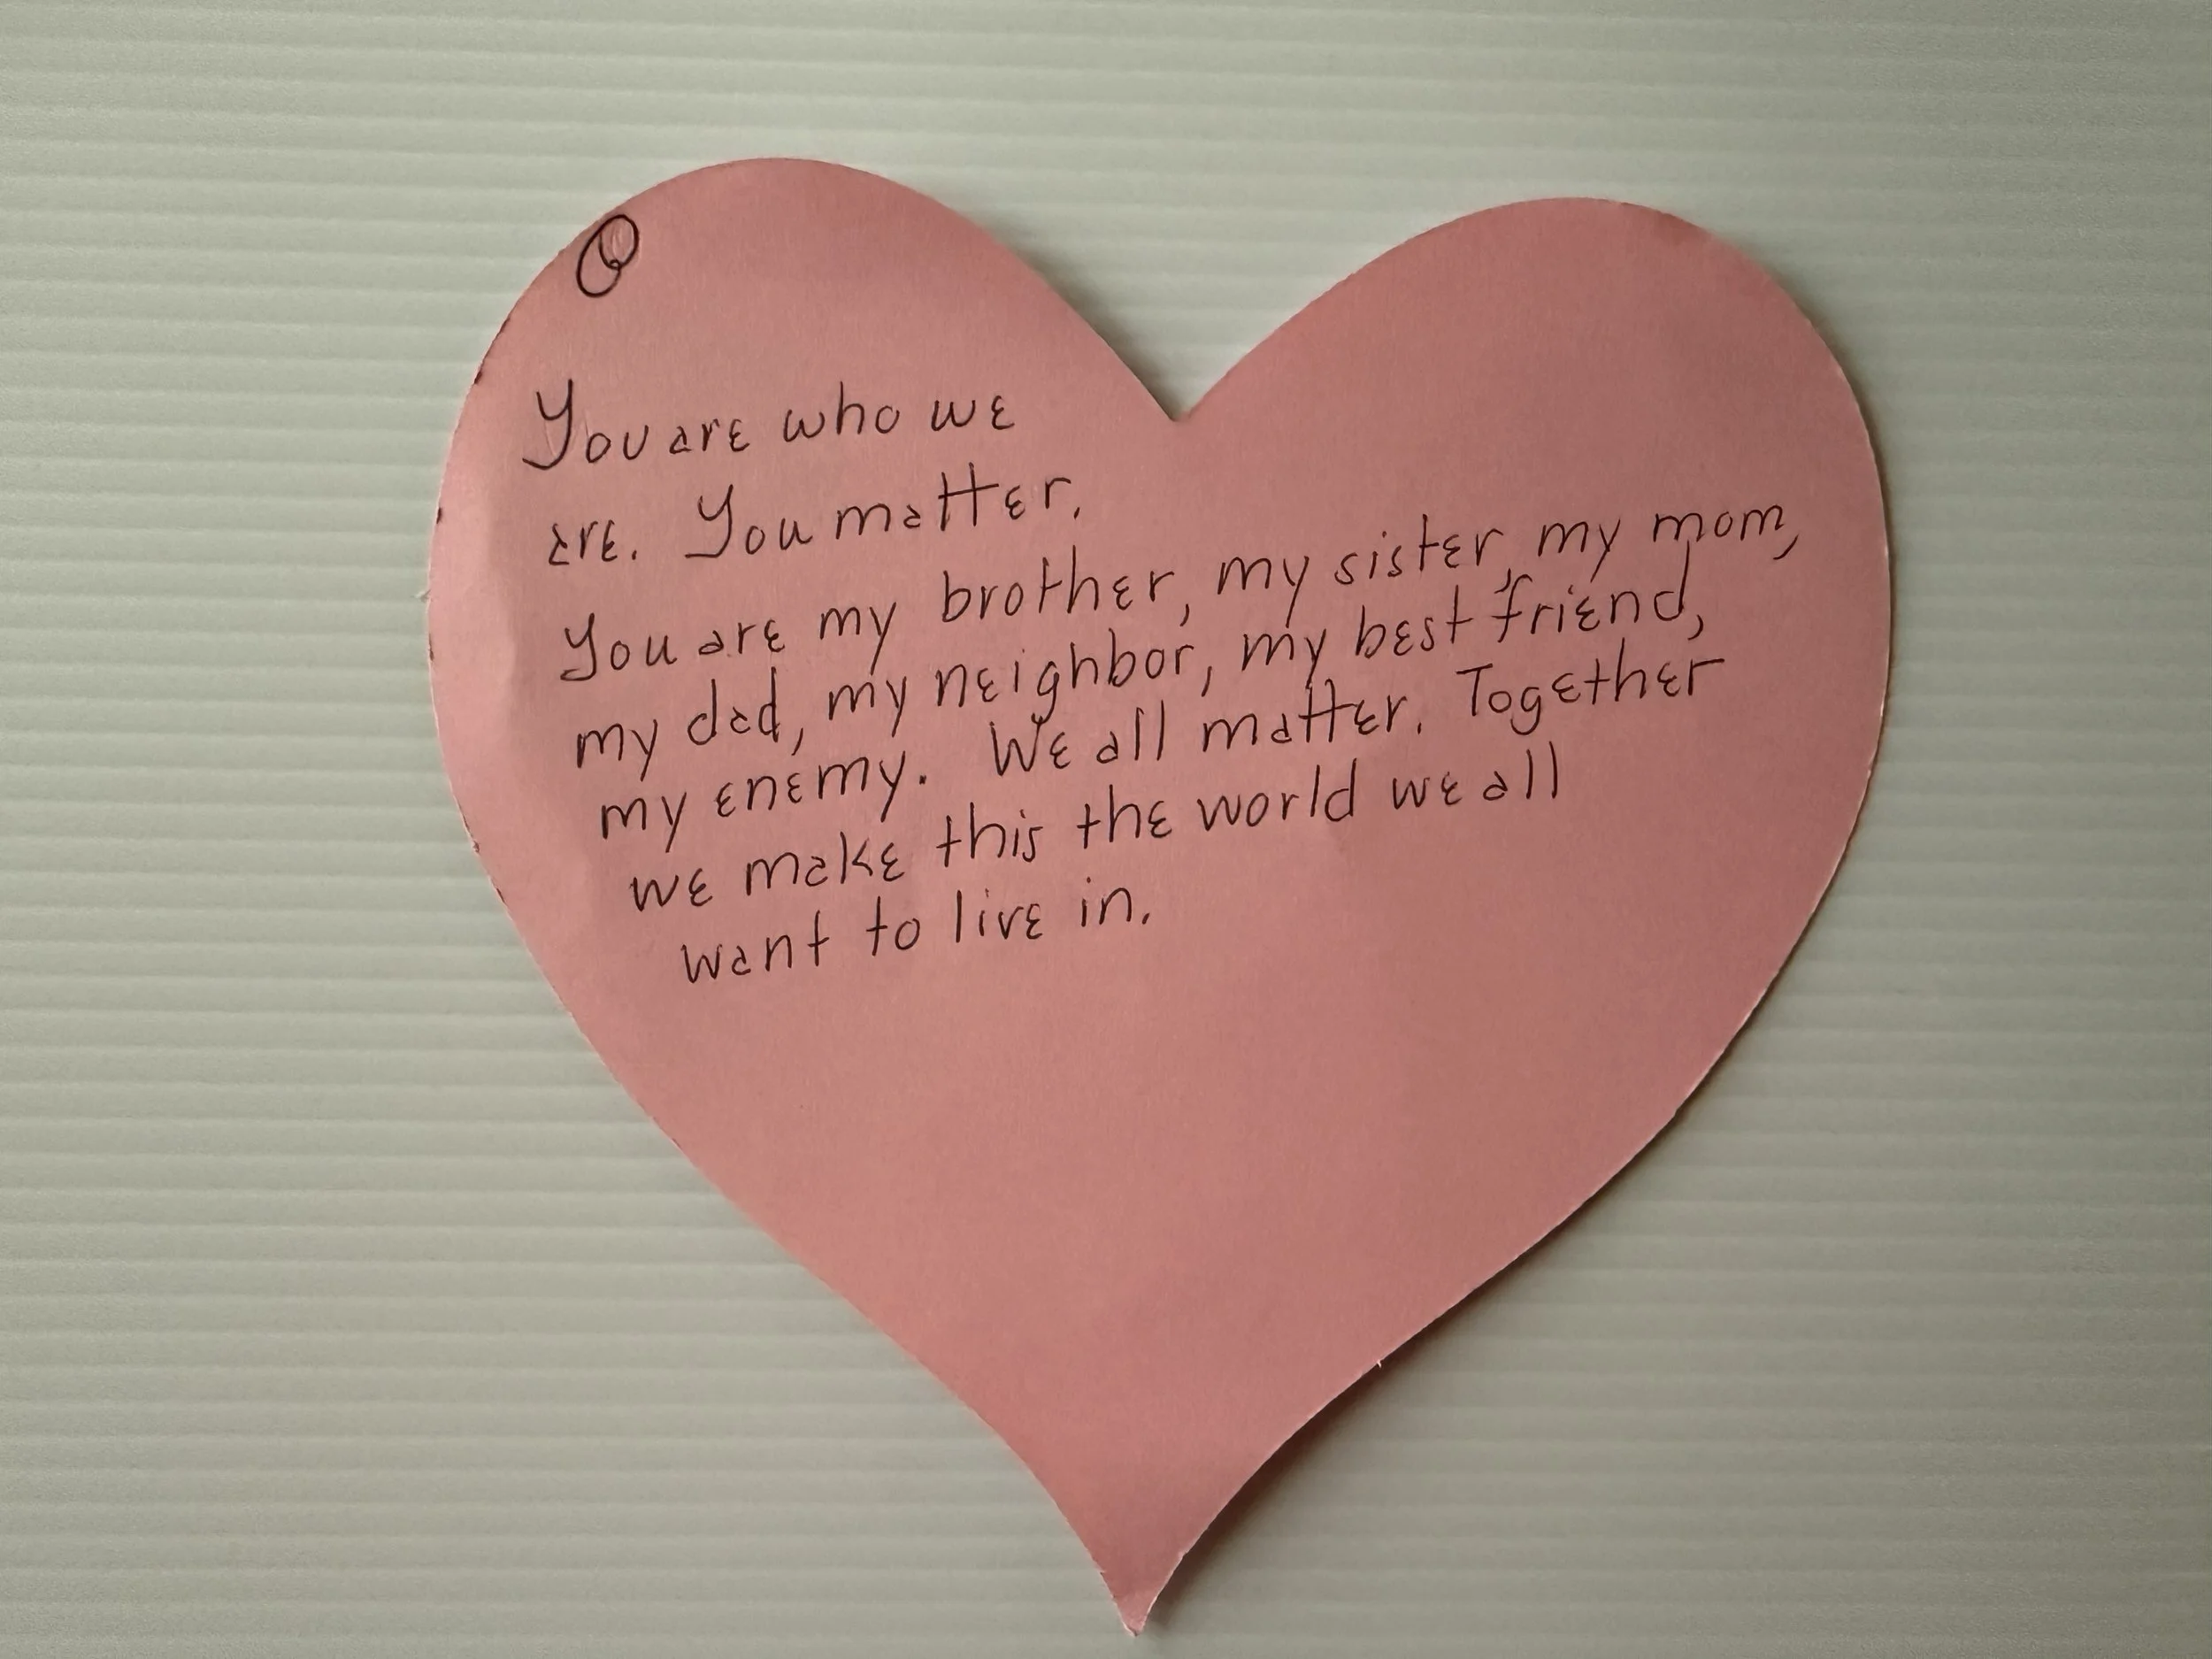 You are who we
are. You matter.
You are my brother, my sister, my mom,
my dad, my neighbor, my best friend,
my enemy. We all matter. Together
we make this the world we all
want to live in.